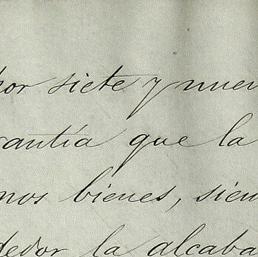 por siete y nuev
rantía que la
nos bienes, sien
dedor la alcaba